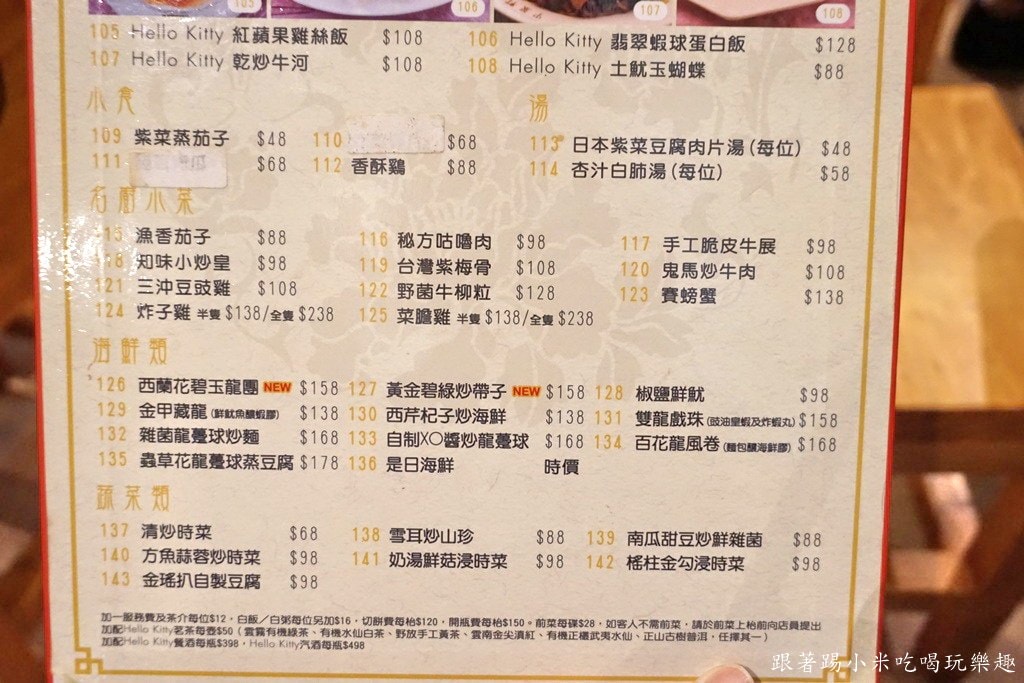 103 106 107 108
105 Hello Kitty 紅蘋果雞絲飯 $108 106 Hello Kitty 翡翠蝦球蛋白飯 $128
107 Hello Kitty 乾炒牛河 $108 108 Hello Kitty 土魷玉蝴蝶 $88
小食 湯
109 紫菜蒸茄子 $48 110 $68 113 日本紫菜豆腐肉片湯(每位) $48
111 $68 112 香酥鷄 $88 114 杏汁白肺湯(每位) $58
名廚小菜
115 漁香茄子 $88 116 秘方咕嚕肉 $98 117 手工脆皮牛展 $98
118 知味小炒皇 $98 119 台灣紫梅骨 $108 120 鬼馬炒牛肉 $108
121 三沖豆豉雞 $108 122 野菌牛柳粒 $128 123 賽螃蟹 $138
124 炸子雞 半隻$138/全隻$238 125 菜膽雞 半隻$138/全隻$238
海鮮類
126 西蘭花碧玉龍團 NEW $158 127 黃金碧綠炒帶子 NEW $158 128 椒鹽鮮魷 $98
129 金甲藏龍(鮮魷魚釀蝦膠) $138 130 西芹杞子炒海鮮 $138 131 雙龍戲珠(豉油皇蝦及炸蝦丸) $158
132 雜菌龍躉球炒麵 $168 133 自制XO醬炒龍躉球 $168 134 百花龍風卷(麵包釀海鮮膠) $168
135 蟲草花龍躉球蒸豆腐 $178 136 是日海鮮 時價
蔬菜類
137 清炒時菜 $68 138 雪耳炒山珍 $88 139 南瓜甜豆炒鮮雜菌 $88
140 方魚蒜蓉炒時菜 $98 141 奶湯鮮菇浸時菜 $98 142 榣柱金勾浸時菜 $98
143 金瑤扒自製豆腐 $98
加一服務費及茶介每位$12，白飯／白粥每位另加$16，切餅費每枱$120，開瓶費每枱$150。前菜每碟$28，如客人不需前菜，請於前菜上枱前向店員提出
加配Hello Kitty茗茶每壺$50（雲霧有機綠茶、有機水仙白茶、野放手工黃茶、雲南金尖滇紅、有機正欉武夷水仙、正山古樹普洱，任擇其一）
加配Hello Kitty餐酒每瓶$398，Hello Kitty汽酒每瓶$498
跟著踢小米吃喝玩樂趣